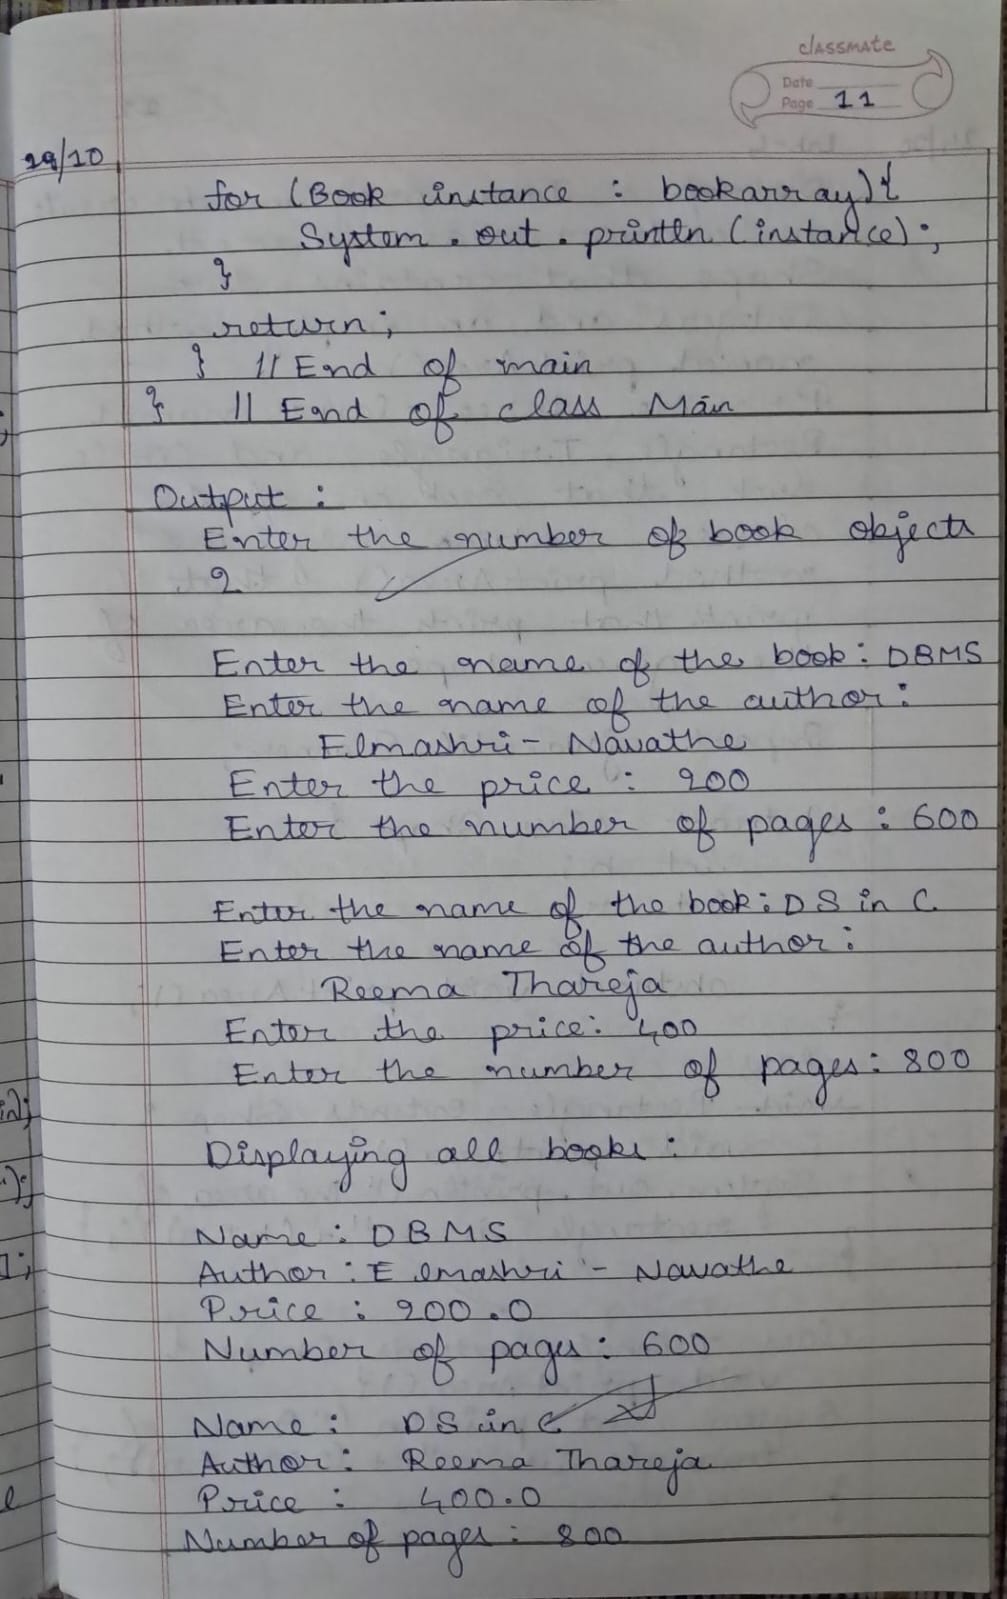 classmate
Date
Page 11
29/10
for (Book instance : bookarray){
System.out.println(instance);
}
return;
} // End of main
} // End of class Main
Output :
Enter the number of book objects
2
Enter the name of the book: DBMS
Enter the name of the author:
Elmashri - Navathe
Enter the price : 200
Enter the number of pages : 600
Enter the name of the book: DS in C
Enter the name of the author:
Reema Thareja
Enter the price: 400
Enter the number of pages: 800
Displaying all books:
Name : DBMS
Author : Elmashri - Navathe
Price : 200.0
Number of pages : 600
Name : DS in C
Author : Reema Thareja
Price : 400.0
Number of pages : 800